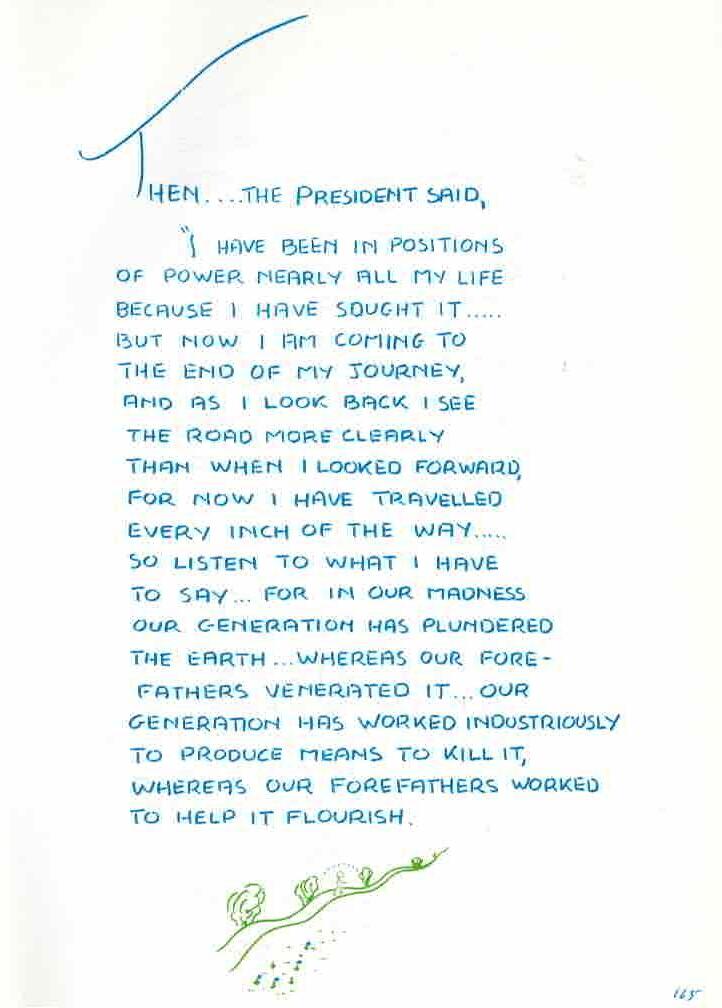 THEN....THE PRESIDENT SAID,
"I HAVE BEEN IN POSITIONS
OF POWER NEARLY ALL MY LIFE
BECAUSE I HAVE SOUGHT IT.....
BUT NOW I AM COMING TO
THE END OF MY JOURNEY,
AND AS I LOOK BACK I SEE
THE ROAD MORE CLEARLY
THAN WHEN I LOOKED FORWARD,
FOR NOW I HAVE TRAVELLED
EVERY INCH OF THE WAY.....
SO LISTEN TO WHAT I HAVE
TO SAY... FOR IN OUR MADNESS
OUR GENERATION HAS PLUNDERED
THE EARTH...WHEREAS OUR FORE-
FATHERS VENERATED IT...OUR
GENERATION HAS WORKED INDUSTRIOUSLY
TO PRODUCE MEANS TO KILL IT,
WHEREAS OUR FOREFATHERS WORKED
TO HELP IT FLOURISH.
165